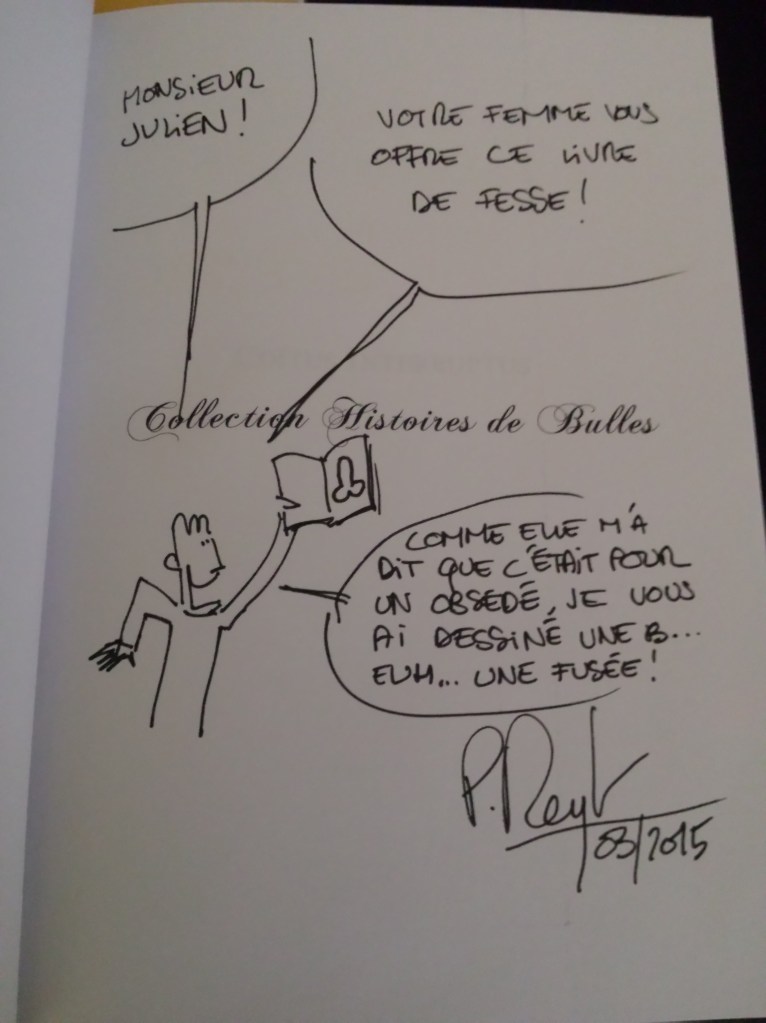 MONSIEUR
JULIEN !
VOTRE FEMME VOUS
OFFRE CE LIVRE
DE FESSE !
Collection Histoires de Bulles
COMME ELLE M'A
DIT QUE C'ÉTAIT POUR
UN OBSEDÉ, JE VOUS
AI DESSINÉ UNE B...
EUH... UNE FUSÉE !
03/2015